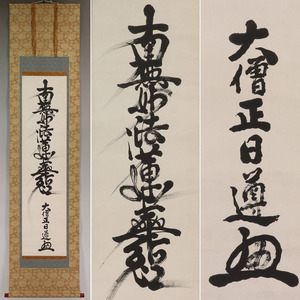 南無妙法蓮華経
大僧正日遵